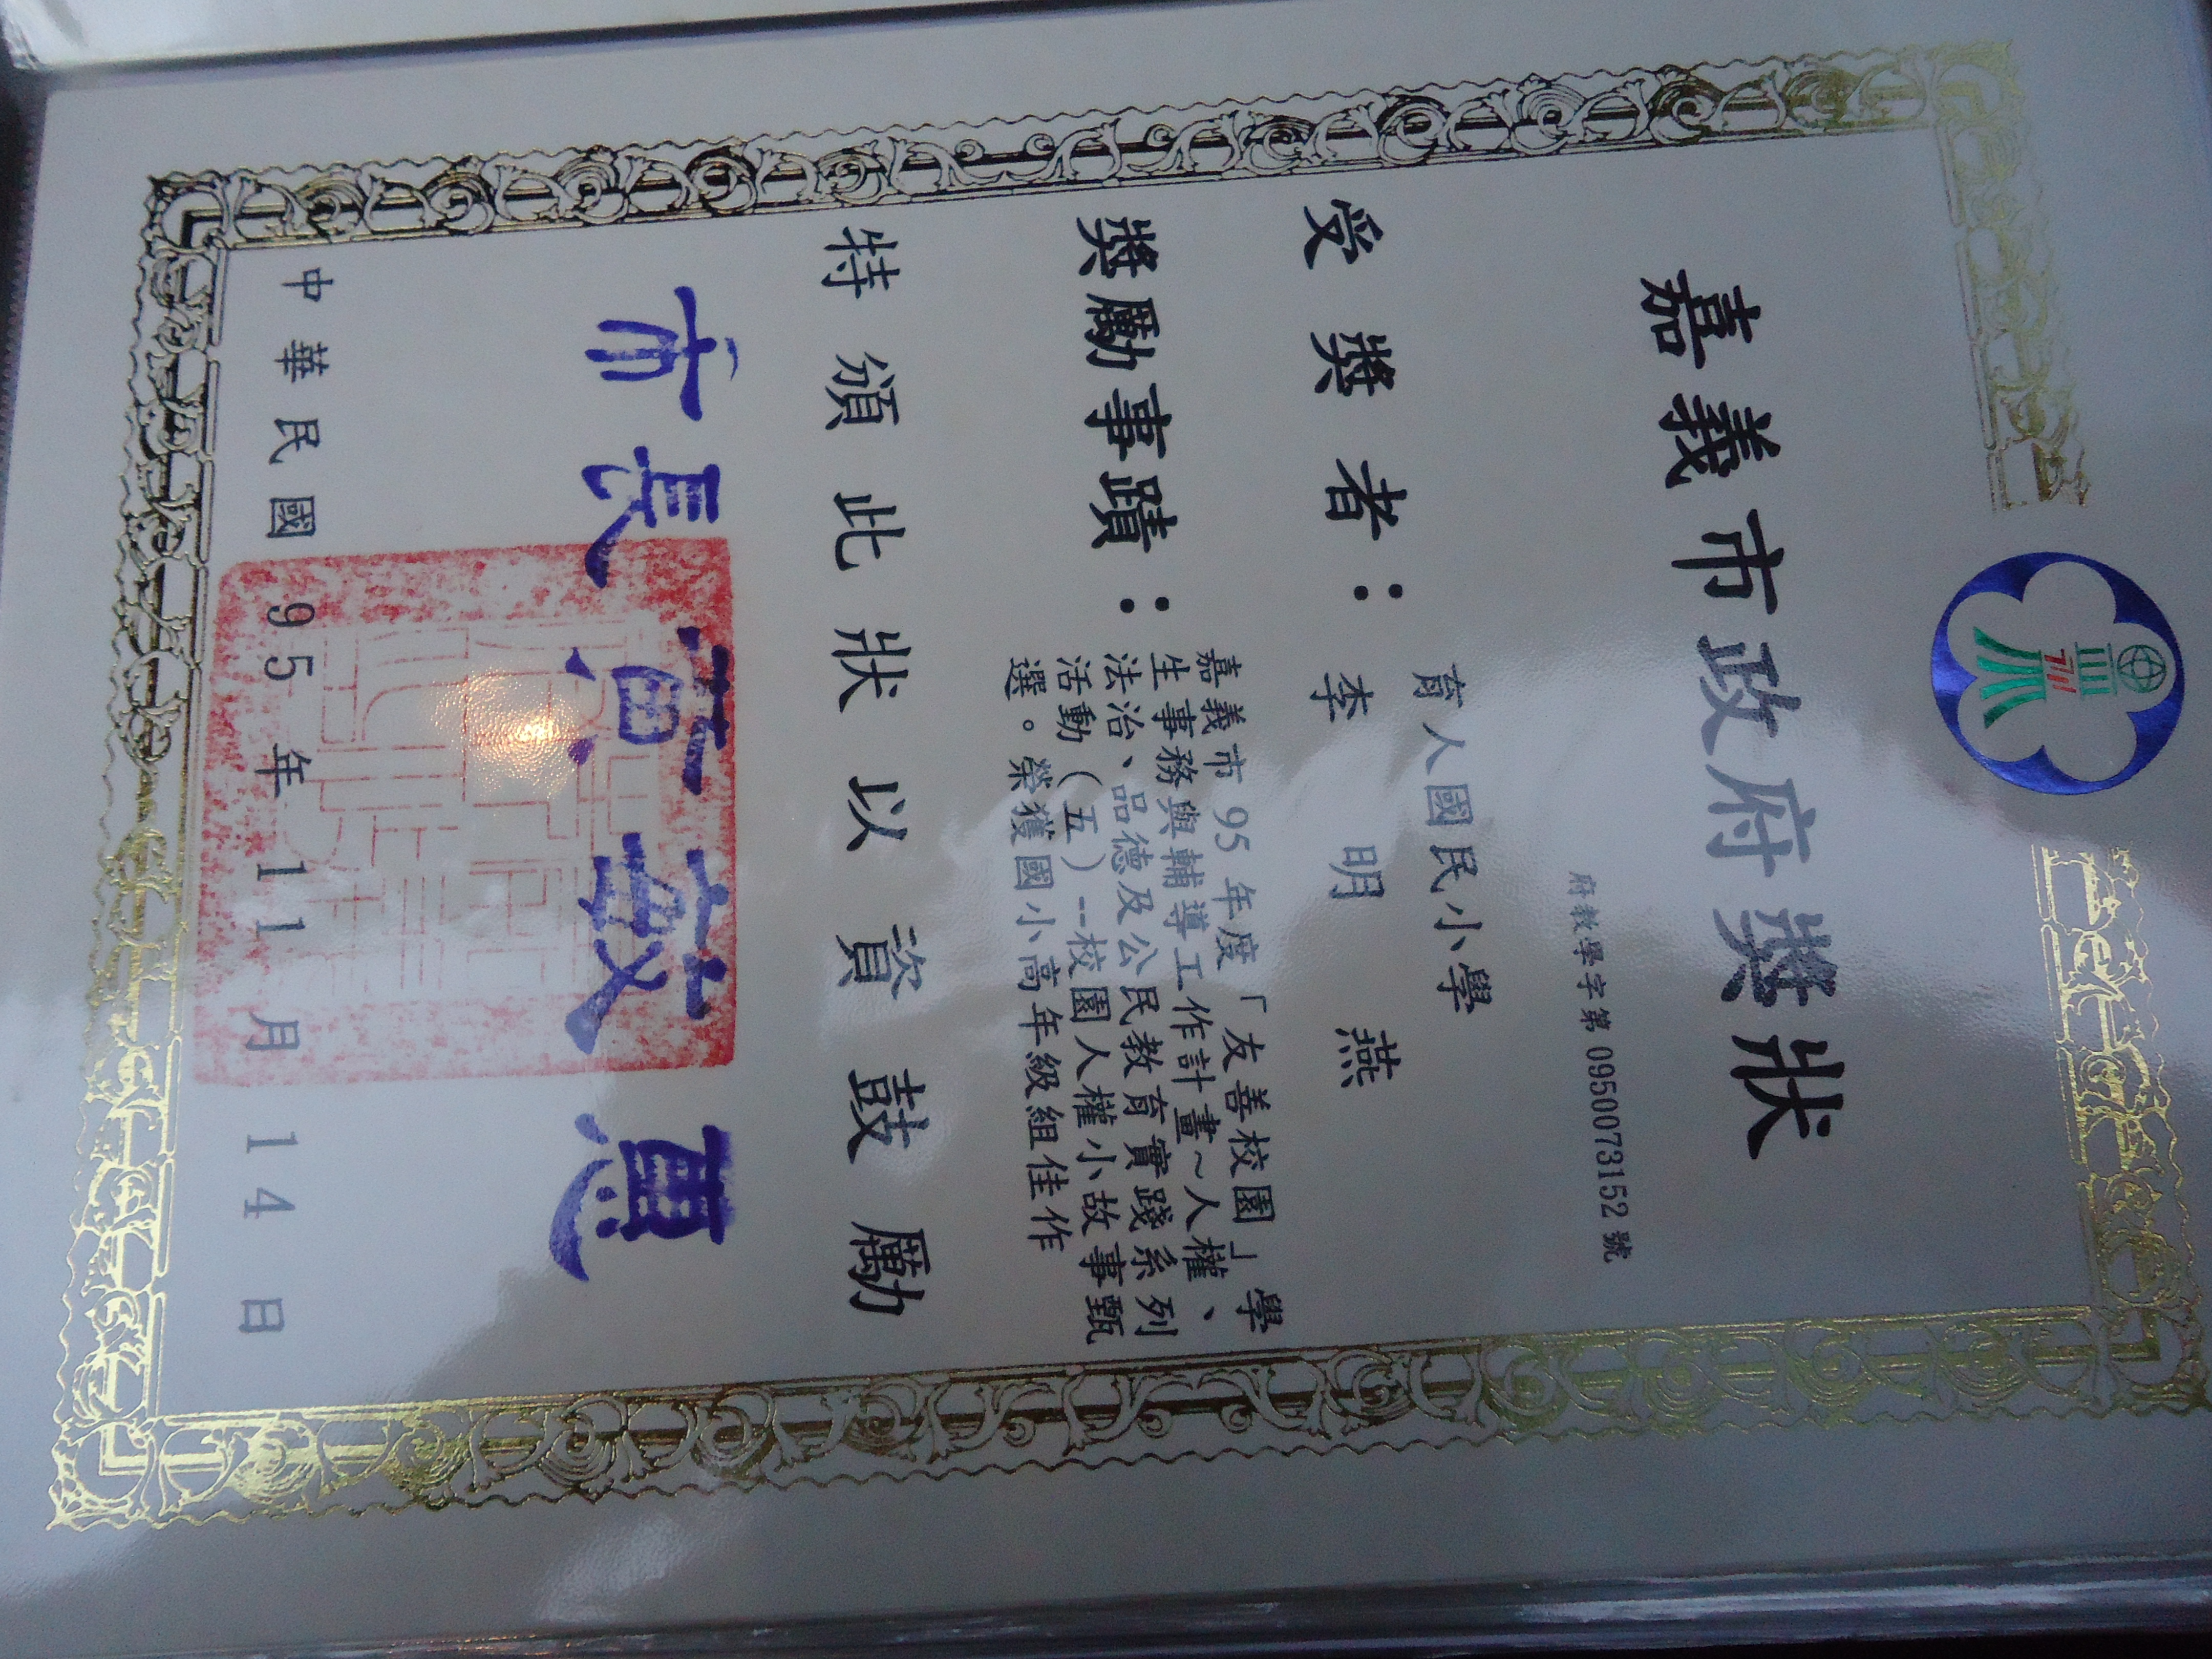 嘉義市政府獎狀
府教學字第 0950073152 號
育人國民小學
受獎者：李明燕
獎勵事蹟：嘉義市 95 年度「友善校園」學
生事務與輔導工作計畫~人權、
法治、品德及公民教育實踐系列
活動（五）--校園人權小故事甄
選。榮獲國小高年級組佳作
特頒此狀以資鼓勵
市長黃敏惠
中華民國 95 年 11 月 14 日